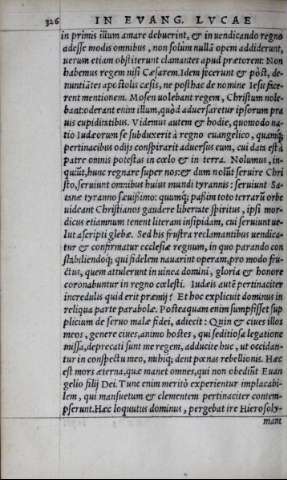 326 IN EVANG. LVCAE
in primis illum amare debuerint, & in uendicando regno
adesse modis omnibus, non solùm nullā opem addiderunt,
uerum etiam obstiterunt clamantes apud prætorem: Non
habemus regem nisi Cæsarem. Idem fecerunt & pòst, de-
nuntiātes apostolis cæsis, ne posthac de nomine Iesu face-
rent mentionem. Mosen uolebant regem, Christum nole-
bant: oderant enim illum, quòd aduersaretur ipsorum pra
uis cupiditatibus. Videmus autem & hodie, quomodo na-
tio Iudæorum se subduxerit à regno euangelico, quamq́;
pertinacibus odijs conspirarit aduersus eum, cui data est à
patre omnis potestas in cœlo & in terra. Nolumus, in-
quiūt, hunc regnare super nos: & dum nolūt seruire Chri
sto, seruiunt omnibus huius mundi tyrannis: seruiunt Sa-
tanæ tyranno sæuissimo: quumq́; paßim toto terrarū orbe
uideant Christianos gaudere libertate spiritus, ipsi mor-
dicus etiamnum tenent literam insipidam, cui seruiunt ue-
lut ascripti glebæ. Sed his frustra reclamantibus uendica-
tur & confirmatur ecclesiæ regnum, in quo parando con
stabiliendoq́; qui fidelem nauarint operam, pro modo fru-
ctus, quem attulerunt in uinea domini, gloria & honore
coronabuntur in regno cœlesti. Iudæis autē pertinaciter
incredulis quid erit præmij? Et hoc explicuit dominus in
reliqua parte parabolæ. Posteaquam enim sumpsisset sup
plicium de seruo malæ fidei, adiecit: Quin & ciues illos
meos, genere ciues, animo hostes, qui seditiosa legatione
missa, deprecati sunt me regem, adducite huc, ut occidan-
tur in conspectu meo, mihiq́; dent pœnas rebellionis. Hæc
est mors æterna, quæ manet omnes, qui non obediūt Euan
gelio filij Dei. Tunc enim meritò experientur implacabi-
lem, qui mansuetum & clementem pertinaciter contem-
pserunt. Hæc loquutus dominus, pergebat ire Hierosoly-
mam